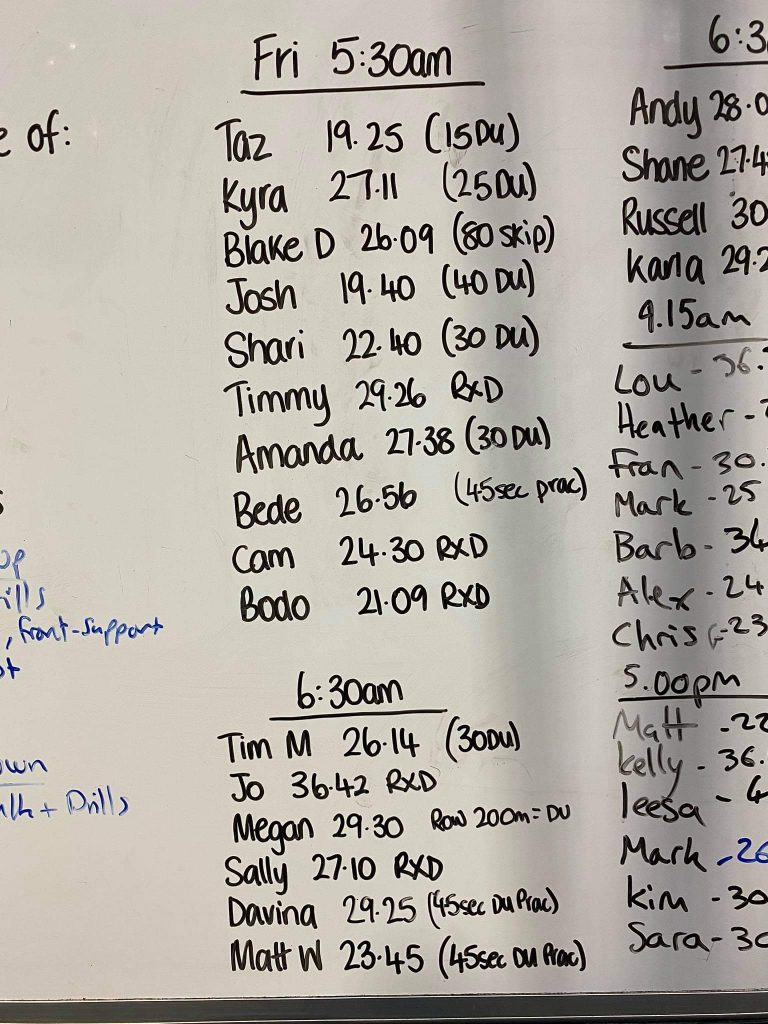 e of:
up
ills
, front-support
own
+ Drills
Fri 5:30am
Taz 19.25 (15DU)
Kyra 27.11 (25DU)
Blake D 26.09 (80 skip)
Josh 19.40 (40DU)
Shari 22.40 (30 DU)
Timmy 29.26 RXD
Amanda 27.38 (30 DU)
Bede 26.56 (45sec prac)
Cam 24.30 RXD
Bodo 21.09 RXD
6:30am
Tim M 26.14 (30DU)
Jo 36.42 RXD
Megan 29.30 Row 200m = DU
Sally 27.10 RXD
Davina 29.25 (45sec DU Prac)
Matt W 23.45 (45sec DU Prac)
6:3
Andy 28.0
Shane 27.4
Russell 30
Kana 29.2
9.15am
Lou - 36.
Heather -
Fran - 30.
Mark - 25
Barb - 34
Alex - 24
Chris - 23
5.00pm
Matt - 22
Kelly - 36.
leesa - 4
Mark - 26
Kim - 30
Sara - 30